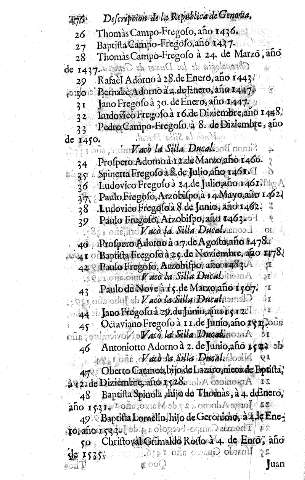 Descripcion de la Republica de Genova,
26 Thomàs Campo-Fregoso, año 1436.
27 Baptista Campo-Fregoso, año 1437.
28 Thomàs Campo-Fregoso à 24. de Março, año
de 1437.
29 Rafael Adorno à 28. de Enero, año 1443.
30 Bernabè Adorno à 4. de Enero, año 1447.
31 Jano Fregoso à 30. de Enero, año 1447.
32 Ludovico Fregoso à 16. de Diziembre, año 1448.
33 Pedro Campo-Fregoso à 8. de Diziembre, año
de 1450.
Vacò la Silla Ducal.
34 Prospero Adorno à 12. de Março, año 1460.
35 Spinetta Fregoso à 8. de Julio, año 1461.
36 Ludovico Fregoso à 24. de Julio, año 1461.
37 Paulo Fregoso, Arzobispo, à 14. Mayo, año 1462.
38 Ludovico Fregoso à 8. de Junio, año 1462.
39 Paulo Fregoso, Arzobispo, año 1463.
Vacò la Silla Ducal.
40 Prospero Adorno à 17. de Agosto, año 1478.
41 Baptista Fregoso à 25. de Noviembre, año 1478.
42 Paulo Fregoso, Arzobispo, año 1483.
Vacò la Silla Ducal.
43 Paulo de Nove à 15. de Março, año 1507.
Vacò la Silla Ducal.
44 Jano Fregoso à 29. de Junio, año 1512.
45 Octaviano Fregoso à 11. de Junio, año
Vacò la Silla Ducal.
46 Antoniotto Adorno à 2. de Junio, año
Vacò la Silla Ducal.
47 Oberto Cataneo, hijo de Lazaro, nieto de Baptista,
à 12. de Diziembre, año 1528.
48 Baptista Spinola, hijo de Thomàs, à 4. de Enero,
año 1531.
49 Baptista Lomelin, hijo de Geronimo, à 4. de Ene-
ro, año 1533.
50 Christoval Grimaldo Rosso à 4. de Enero, año
de 1535.
Juan